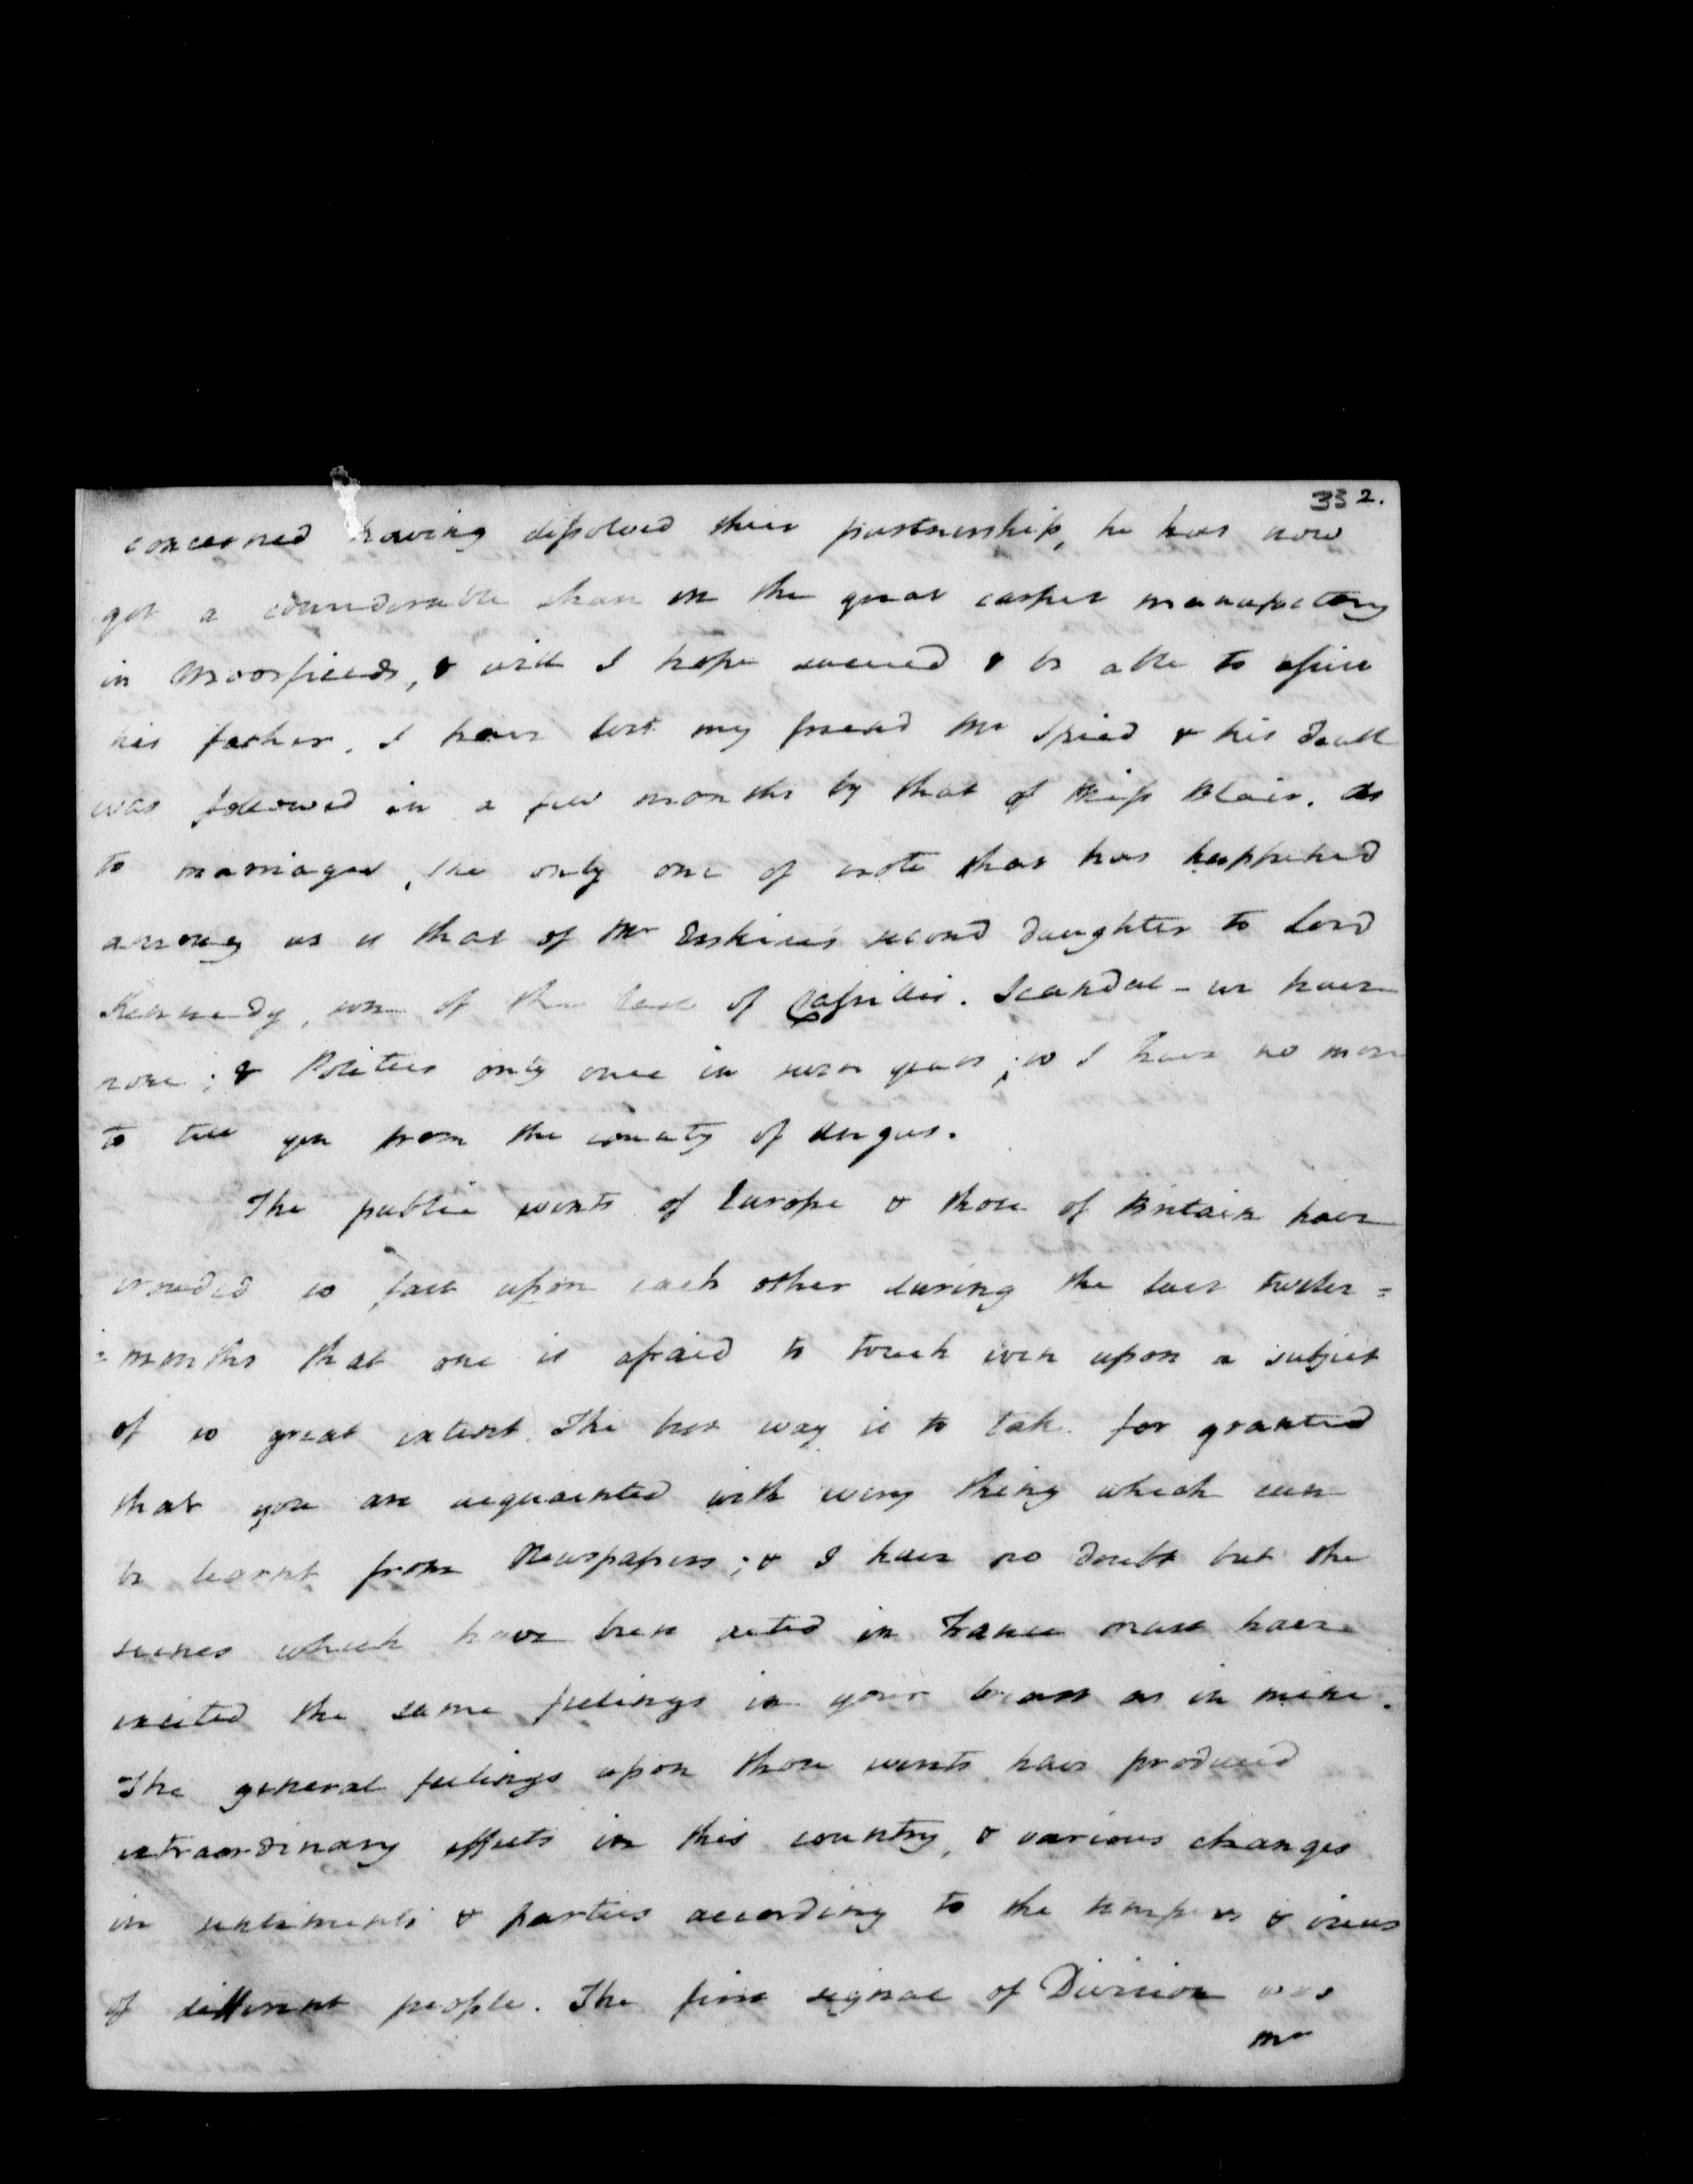 332.
concerned having dissolved their partnership, he has now
got a considerable share in the great carpet manufactory
in Moorfields, & will I hope succeed & be able to assist
his father. I have lost my friend Mr Speid & his death
was followed in a few months by that of Miss Blair. As
to marriages, the only one of note that has happened
among us is that of Mr Erskine's second daughter to Lord
Kennedy, son of the Earl of Cassillis. Scandal - we have
none; & Politics only once in seven years; so I have no more
to tell you from the county of Angus.
The public events of Europe & those of Britain have
crowded so fast upon each other during the last twelve=
=months that one is afraid to touch even upon a subject
of so great extent. The best way is to take for granted
that you are acquainted with every thing which can
be learnt from Newspapers; & I have no doubt but the
scenes which have been acted in France must have
excited the same feelings in your breast as in mine.
The general feelings upon those events have produced
extraordinary effects in this country, & various changes
in sentiments & parties according to the tempers & views
of different people. The first signal of Division was
Mr